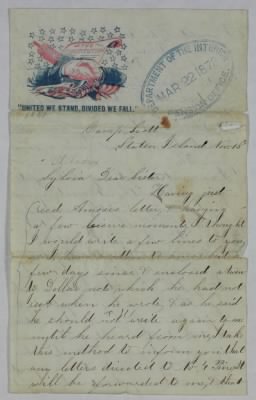 "UNITED WE STAND, DIVIDED WE FALL."
DEPARTMENT OF THE INTERIOR
MAR 22 187
PENSION OFFICE
Camp Scott
Staten Island Nov 15th
Sylvia Dear Sister
Having just
recd letter & having
a few leisure moments I thought
I would write a few lines to you
few days since & enclosed a two
Dollar note which he had not
got when he wrote & as he said
he should not write again to me
until he heard from me, I take
this method to inform you that
any letters directed to Wm G
will be forwarded to me, & that